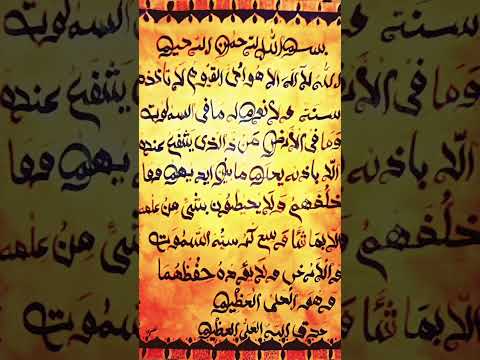 بسم الله الرحمن الرحيم
الله لا اله الا هو الحي القيوم لا تاخذه
سنة ولا نوم له ما في السموت
وما في الأرض من ذا الذي يشفع عنده
الا باذنه يعلم ما بين ايديهم وما
خلفهم ولا يحيطون بشئ من علمه
الا بما شآ وسع كرسيه السموت
والارض ولا يؤده حفظهما
وهو العلي العظيم
صدق الله العلي العظيم